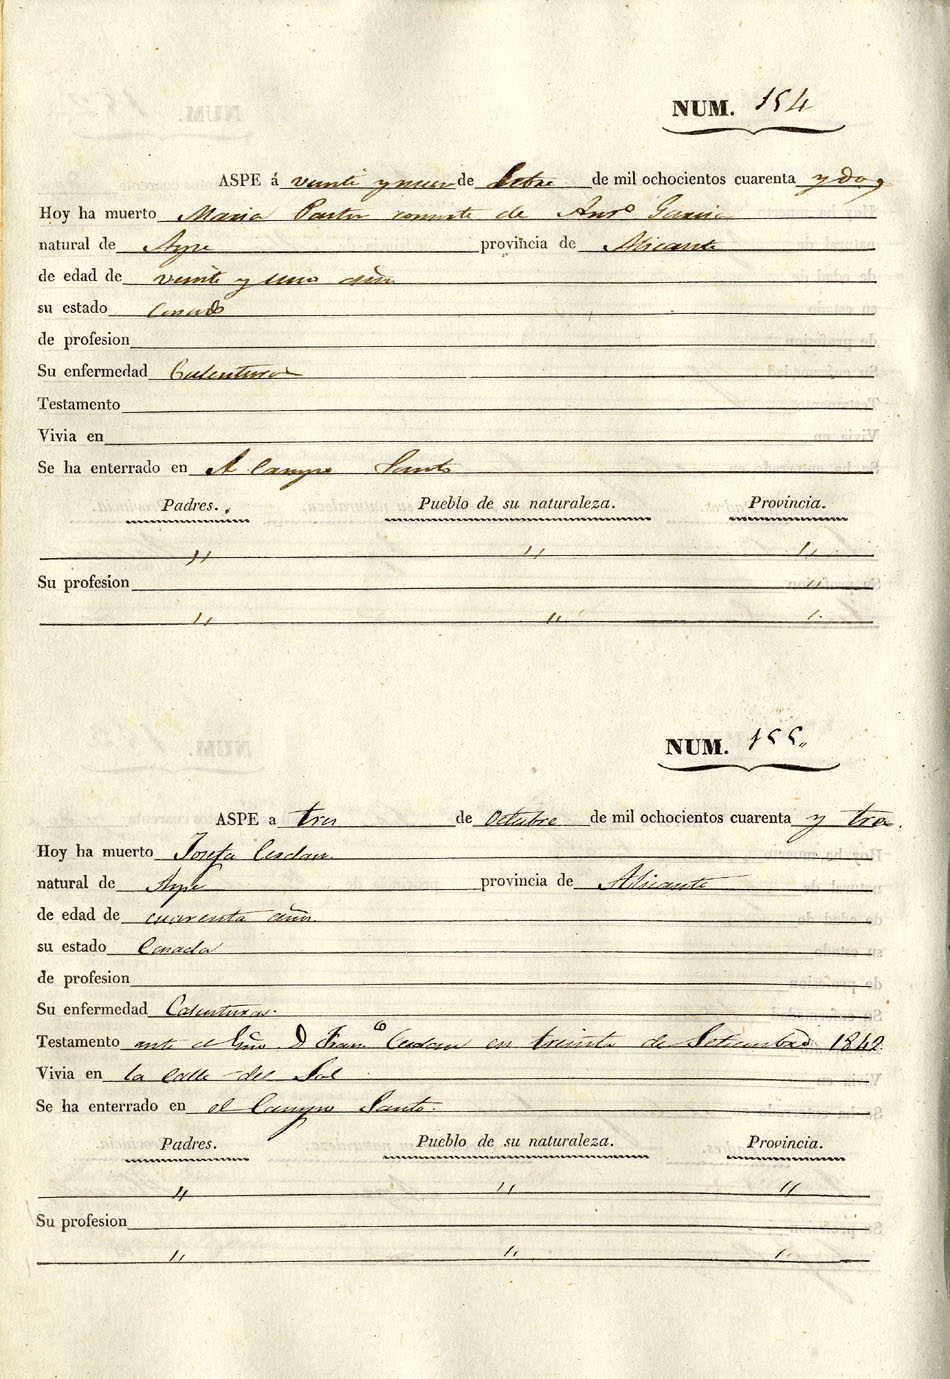 NUM. 154
ASPE á veinte y nueve de Setbre de mil ochocientos cuarenta y dos
Hoy ha muerto Maria Pastor consorte de Anto Garcia
natural de Aspe provincia de Alicante
de edad de veinte y uno años
su estado Casada
de profesion
Su enfermedad Calenturas
Testamento
Vivia en
Se ha enterrado en el Campo Santo
Padres. Pueblo de su naturaleza. Provincia.
" " "
Su profesion "
" " "
NUM. 155
ASPE a tres de Octubre de mil ochocientos cuarenta y
Hoy ha muerto Josefa Cerdan
natural de Aspe provincia de Alicante
de edad de cuarenta años
su estado Casada
de profesion
Su enfermedad Calenturas.
Testamento ante el Esno D Franco Cerdan en treinta de Setiembre 1842
Vivia en la calle del Sol
Se ha enterrado en el Campo Santo.
Padres. Pueblo de su naturaleza. Provincia.
" " "
Su profesion
" " "